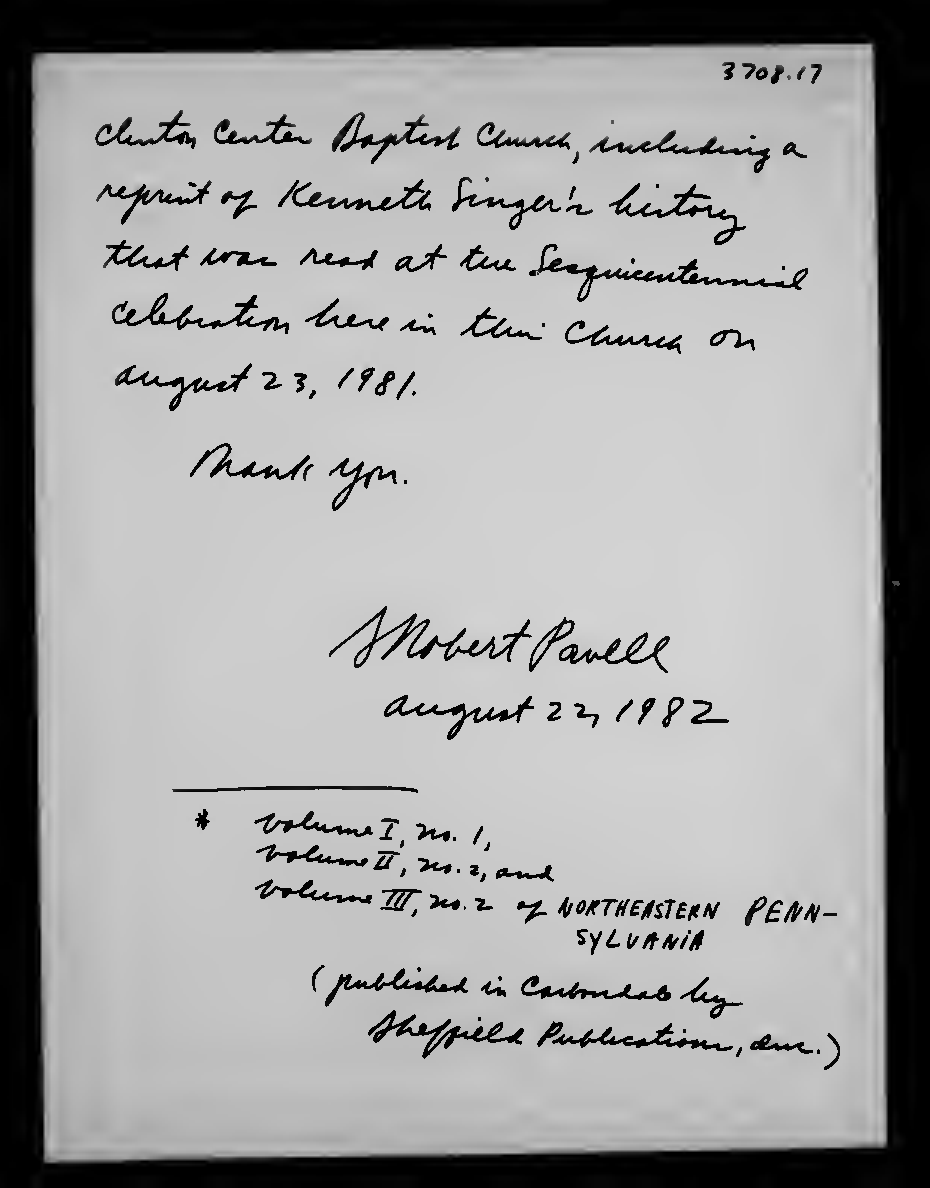 3708.17
Clinton Center Baptist Church, including a
reprint of Kenneth Singer's history
that was read at the Sesquicentennial
celebration here in this Church on
August 23, 1981.
Thank you.
S Robert Powell
August 22, 1982
* Volume I, no. 1,
Volume II, no. 2, and
Volume III, no. 2 of NORTHEASTERN PENN-
SYLVANIA
(published in Carbondale by
Sheffield Publications, Inc.)